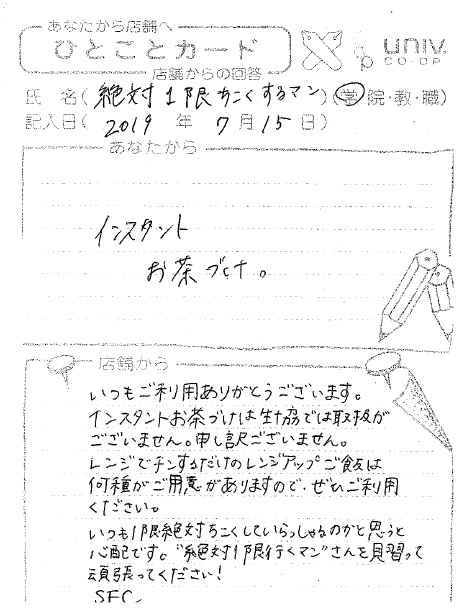 あなたから店舗へ
ひとことカード
店舗からの回答
univ.
CO-OP
氏 名（絶対1限ちこくするマン）（学・院・教・職）
記入日（2019 年 7月15日）
あなたから
インスタント
お茶づけ。
店舗から
いつもご利用ありがとうございます。
インスタントお茶づけは生協では取扱が
ございません。申し訳ございません。
レンジでチンするだけのレンジアップご飯は
何種がご用意がありますので、ぜひご利用
ください。
いつも1限絶対ちこくしていらっしゃるのかと思うと
心配です。"絶対1限行くマン"さんを見習って
頑張ってください！
SFC